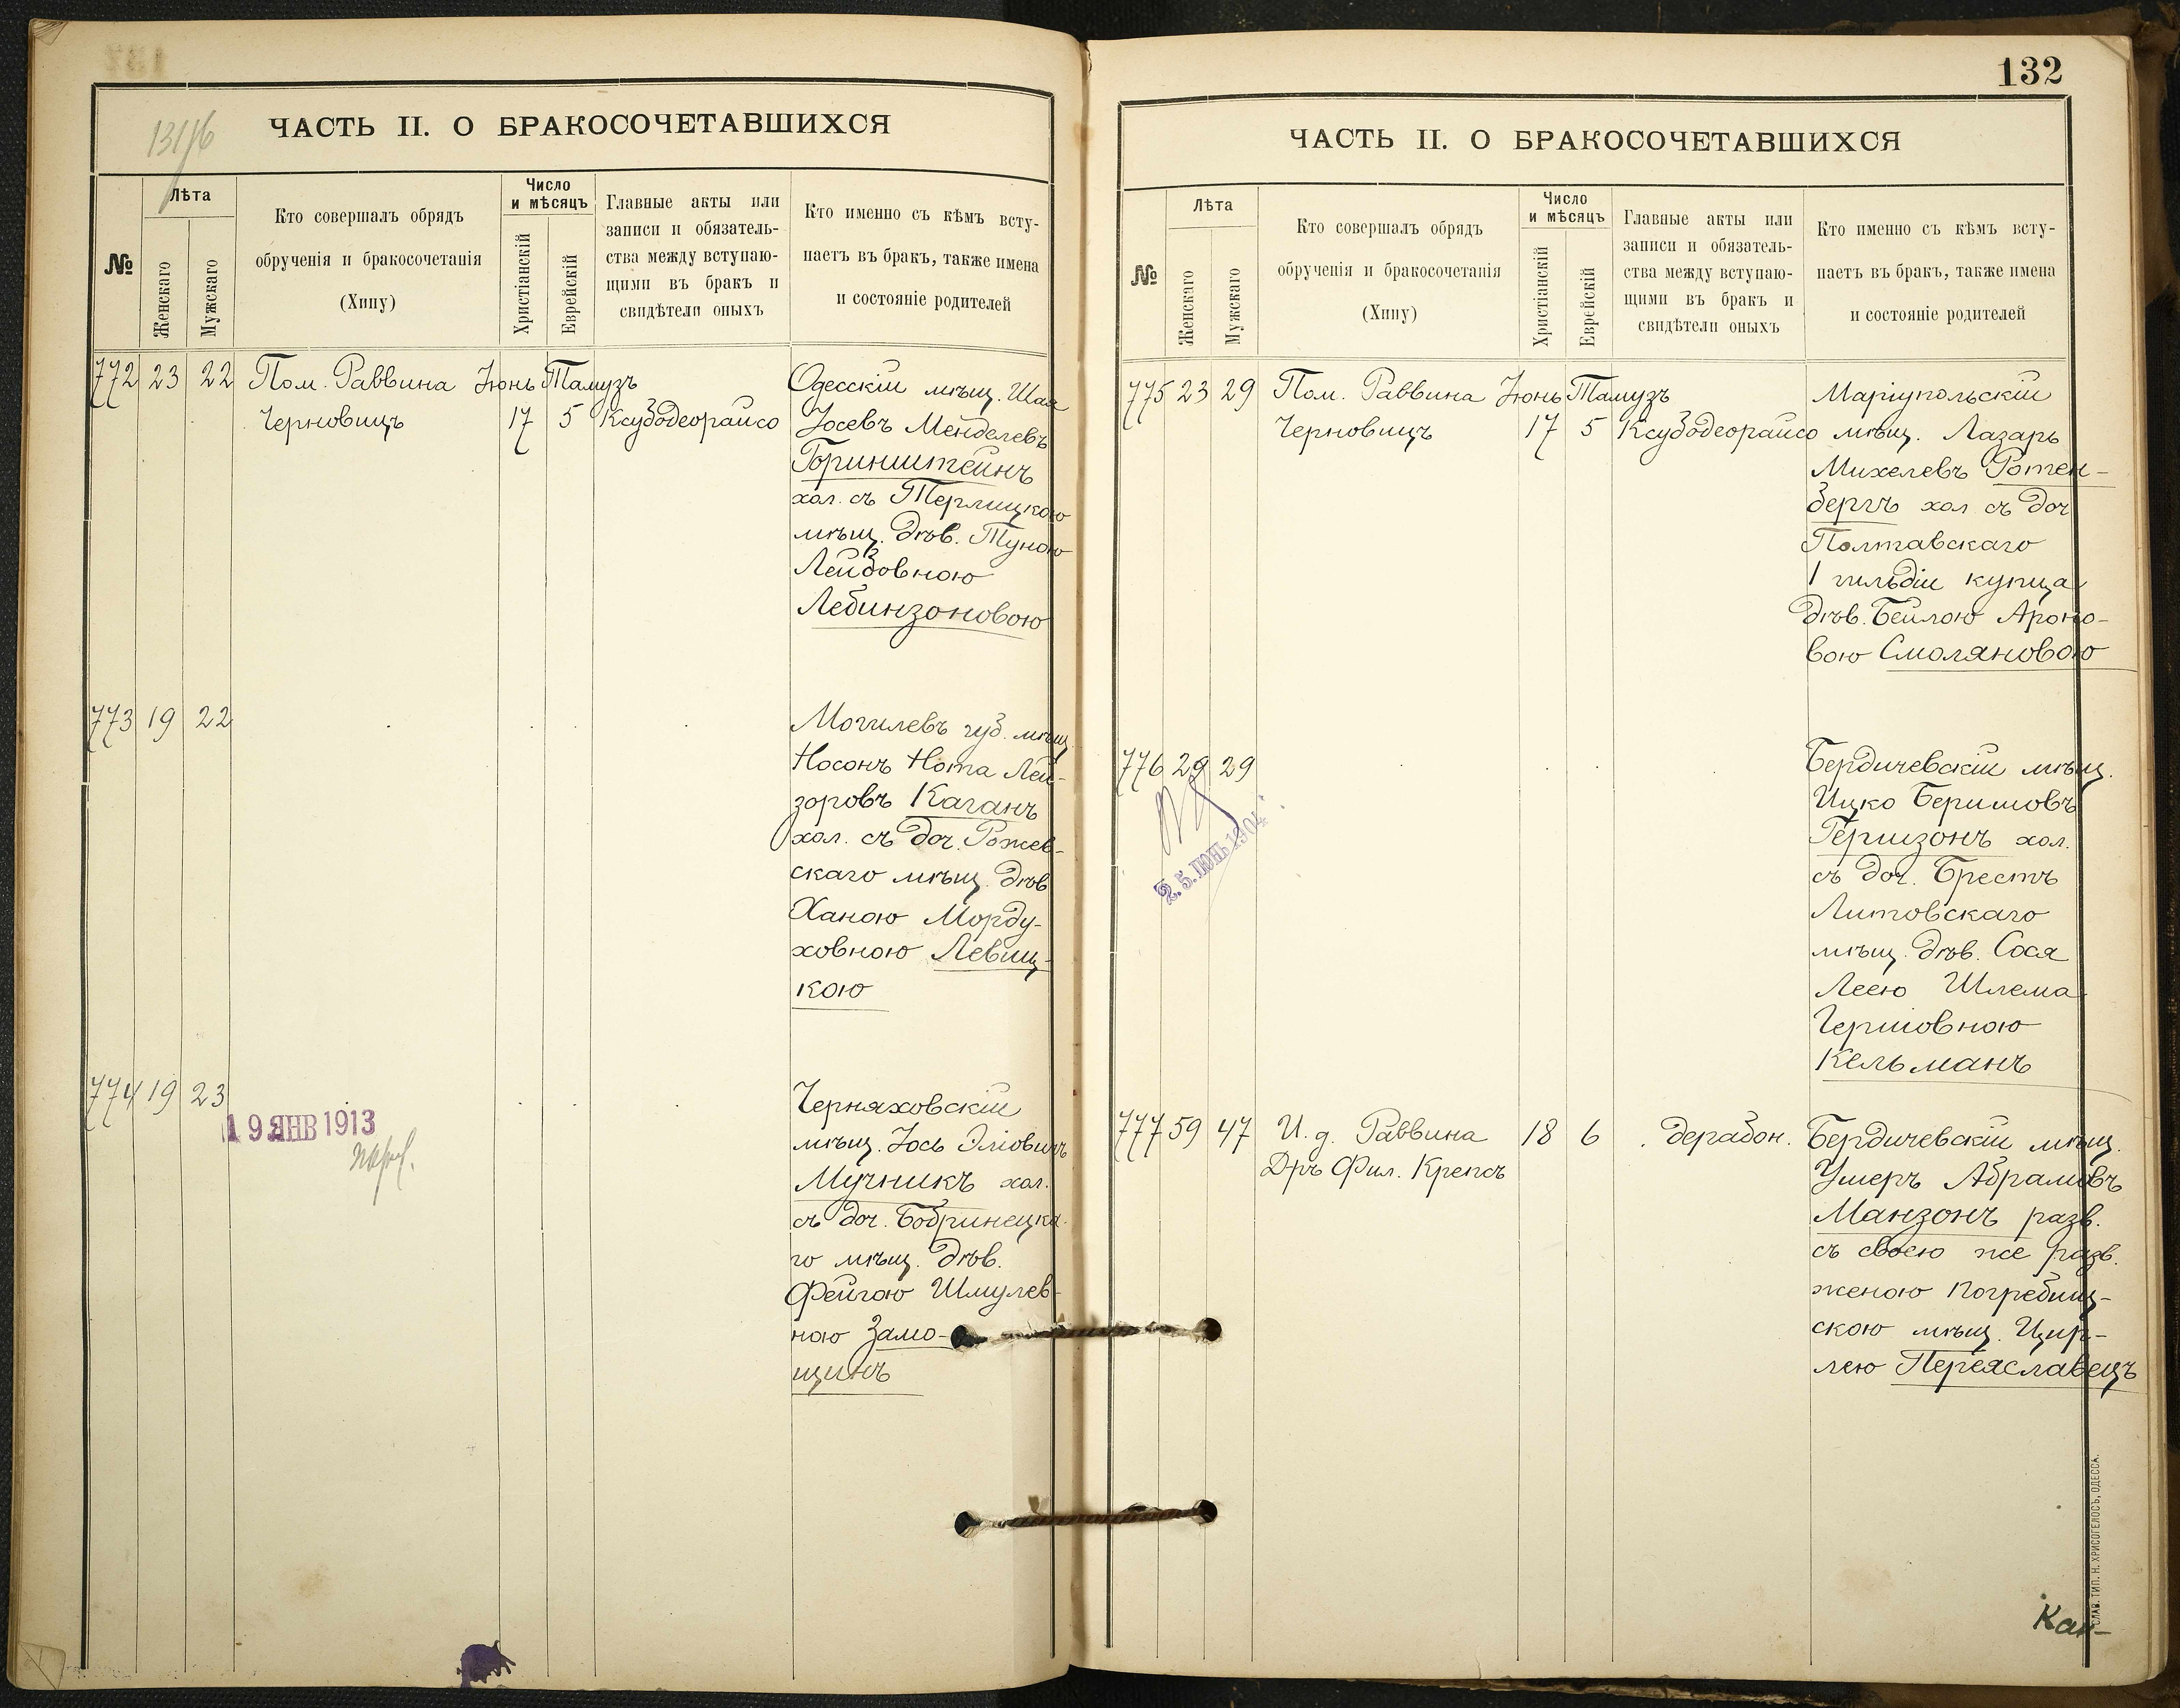 131/б
ЧАСТЬ II. О БРАКОСОЧЕТАВШИХСЯ
№
Лѣта
Женскаго
Мужскаго
Кто совершалъ обрядъ
обрученія и бракосочетанія
(Хипу)
Число
и мѣсяцъ
Христіанскій
Еврейскій
Главные акты или
записи и обязатель-
ства между вступаю-
щими въ бракъ и
свидѣтели оныхъ
Кто именно съ кѣмъ всту-
паетъ въ бракъ, также имена
и состояніе родителей
772 23 22 Пом. Раввина Іюнь Тамузъ Одесскій мѣщ. Шая
Черновицъ 17 5 Ксубодеорайсо Іосевъ Менделевъ
Горинштейнъ
хол. съ Терлицкою
мѣщ. дѣв. Туною
Лейбовною
Лебинзоновою
773 19 22 Могилевъ губ. мѣщ.
Носонъ Нота Лей-
зоровъ Каганъ
хол. съ доч. Рожев-
скаго мѣщ. дѣв
Ханою Морду-
ховною Левиц-
кою
774 19 23 Черняховскій
19 ЯНВ 1913
мѣщ. Іось Эліовичъ
Мучникъ хол.
съ доч. Бобринецка-
го мѣщ. дѣв.
Фейгою Шмулев-
ною Замо-
щинъ
132
ЧАСТЬ II. О БРАКОСОЧЕТАВШИХСЯ
№
Лѣта
Женскаго
Мужскаго
Кто совершалъ обрядъ
обрученія и бракосочетанія
(Хипу)
Число
и мѣсяцъ
Христіанскій
Еврейскій
Главные акты или
записи и обязатель-
ства между вступаю-
щими въ бракъ и
свидѣтели оныхъ
Кто именно съ кѣмъ всту-
паетъ въ бракъ, также имена
и состояніе родителей
775 23 29 Пом. Раввина Іюнь Тамузъ Маріупольскій
Черновицъ 17 5 Ксубодеорайсо мѣщ. Лазарь
Михелевъ Ротен-
бергъ хол. съ доч
Полтавскаго
1 гильдіи купца
дѣв. Бейлою Ароно-
вою Смоляновою
776 29 29 Бердичевскій мѣщ.
Ицко Беришовъ
Гершзонъ хол.
2.5. ІЮНЬ 1904
съ доч. Брестъ
Литовскаго
мѣщ. дѣв. Сося
Леею Шлема
Гершовною
Кельманъ
777 59 47 И. д. Раввина 18 6 дерабон. Бердичевскій мѣщ.
Дръ Фил. Крепсъ Ушеръ Абрамовъ
Манзонъ разв.
съ своею же разв.
женою Погребищ-
скою мѣщ. Цир-
лею Переяславецъ
Кан-
СЛАВ. ТИП. Н. ХРИСОГЕЛОСЪ, ОДЕССА.